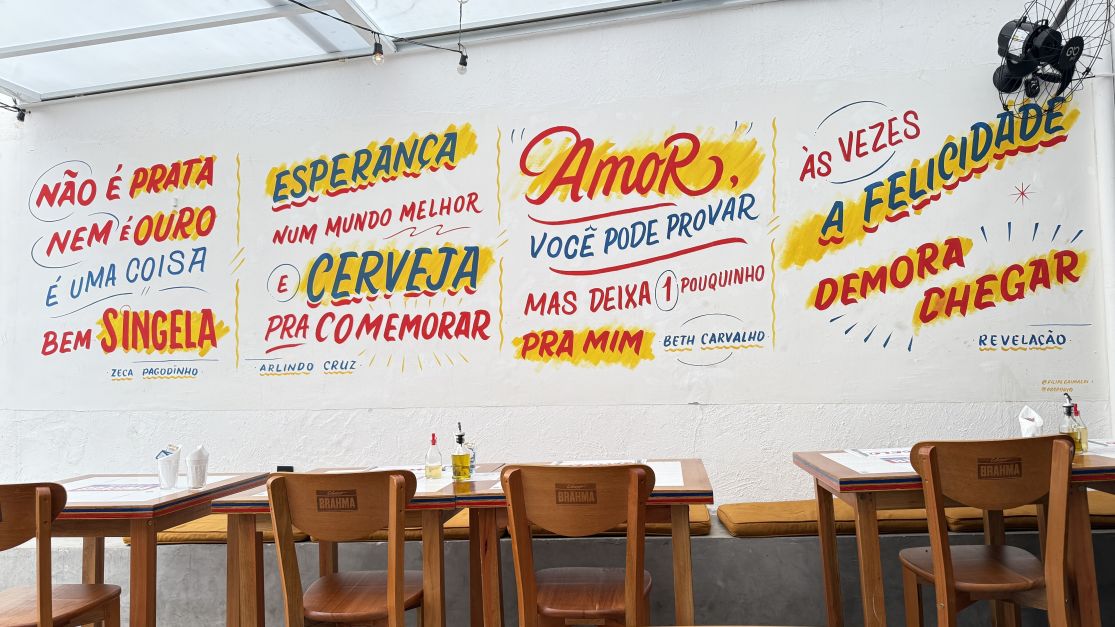 NÃO É PRATA
NEM É OURO
É UMA COISA
BEM SINGELA
ZECA PAGODINHO
ESPERANÇA
NUM MUNDO MELHOR
E CERVEJA
PRA COMEMORAR
ARLINDO CRUZ
AMOR,
VOCÊ PODE PROVAR
MAS DEIXA 1 POUQUINHO
PRA MIM
BETH CARVALHO
ÀS VEZES
A FELICIDADE
DEMORA
CHEGAR
REVELAÇÃO
BRAHMA
BRAHMA
BRAHMA